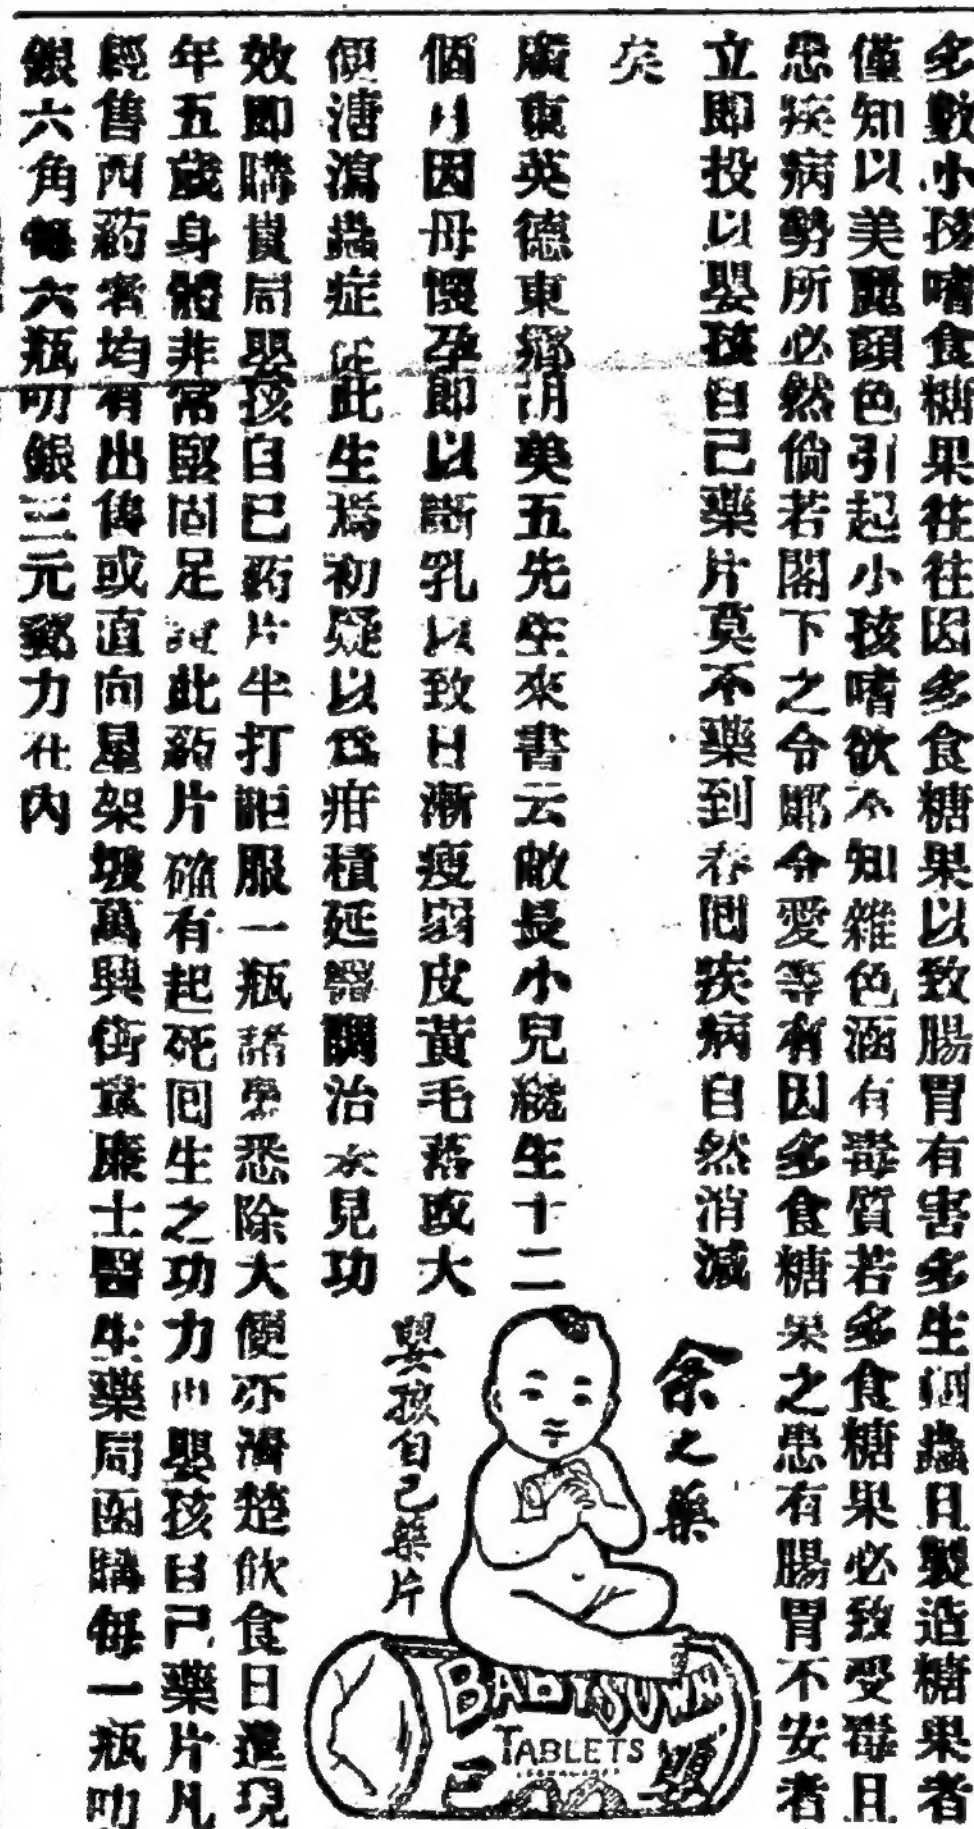 多數小孩嗜食糖果往往因多食糖果以致腸胃有害多生蛔蟲且製造糖果者
僅知以美麗顏色引起小孩嗜欲不知雜色涵有毒質若多食糖果必致受毒且
患疾病勢所必然倘若閣下之令郎令愛等有因多食糖果之患有腸胃不安者
立即投以嬰孩自己藥片莫不藥到春回疾病自然消滅
矣
廣東英德東鄉胡美五先生來書云敝長小兒纔生十二
個月因母懷孕即以斷乳以致日漸瘦弱皮黃毛落或大
便溏瀉蟲症從此生焉初疑以為疳積延醫調治未見功
效即購貴局嬰孩自己葯片半打詎服一瓶諸患悉除大便亦清楚飲食日進現
年五歲身體非常堅固足證此葯片確有起死回生之功力也嬰孩自己藥片凡
經售西葯者均有出售或直向星架坡萬興街韋廉士醫生藥局函購每一瓶叻
銀六角每六瓶叻銀三元郵力在內
余之藥
嬰孩自己藥片
BABY'S OWN
TABLETS